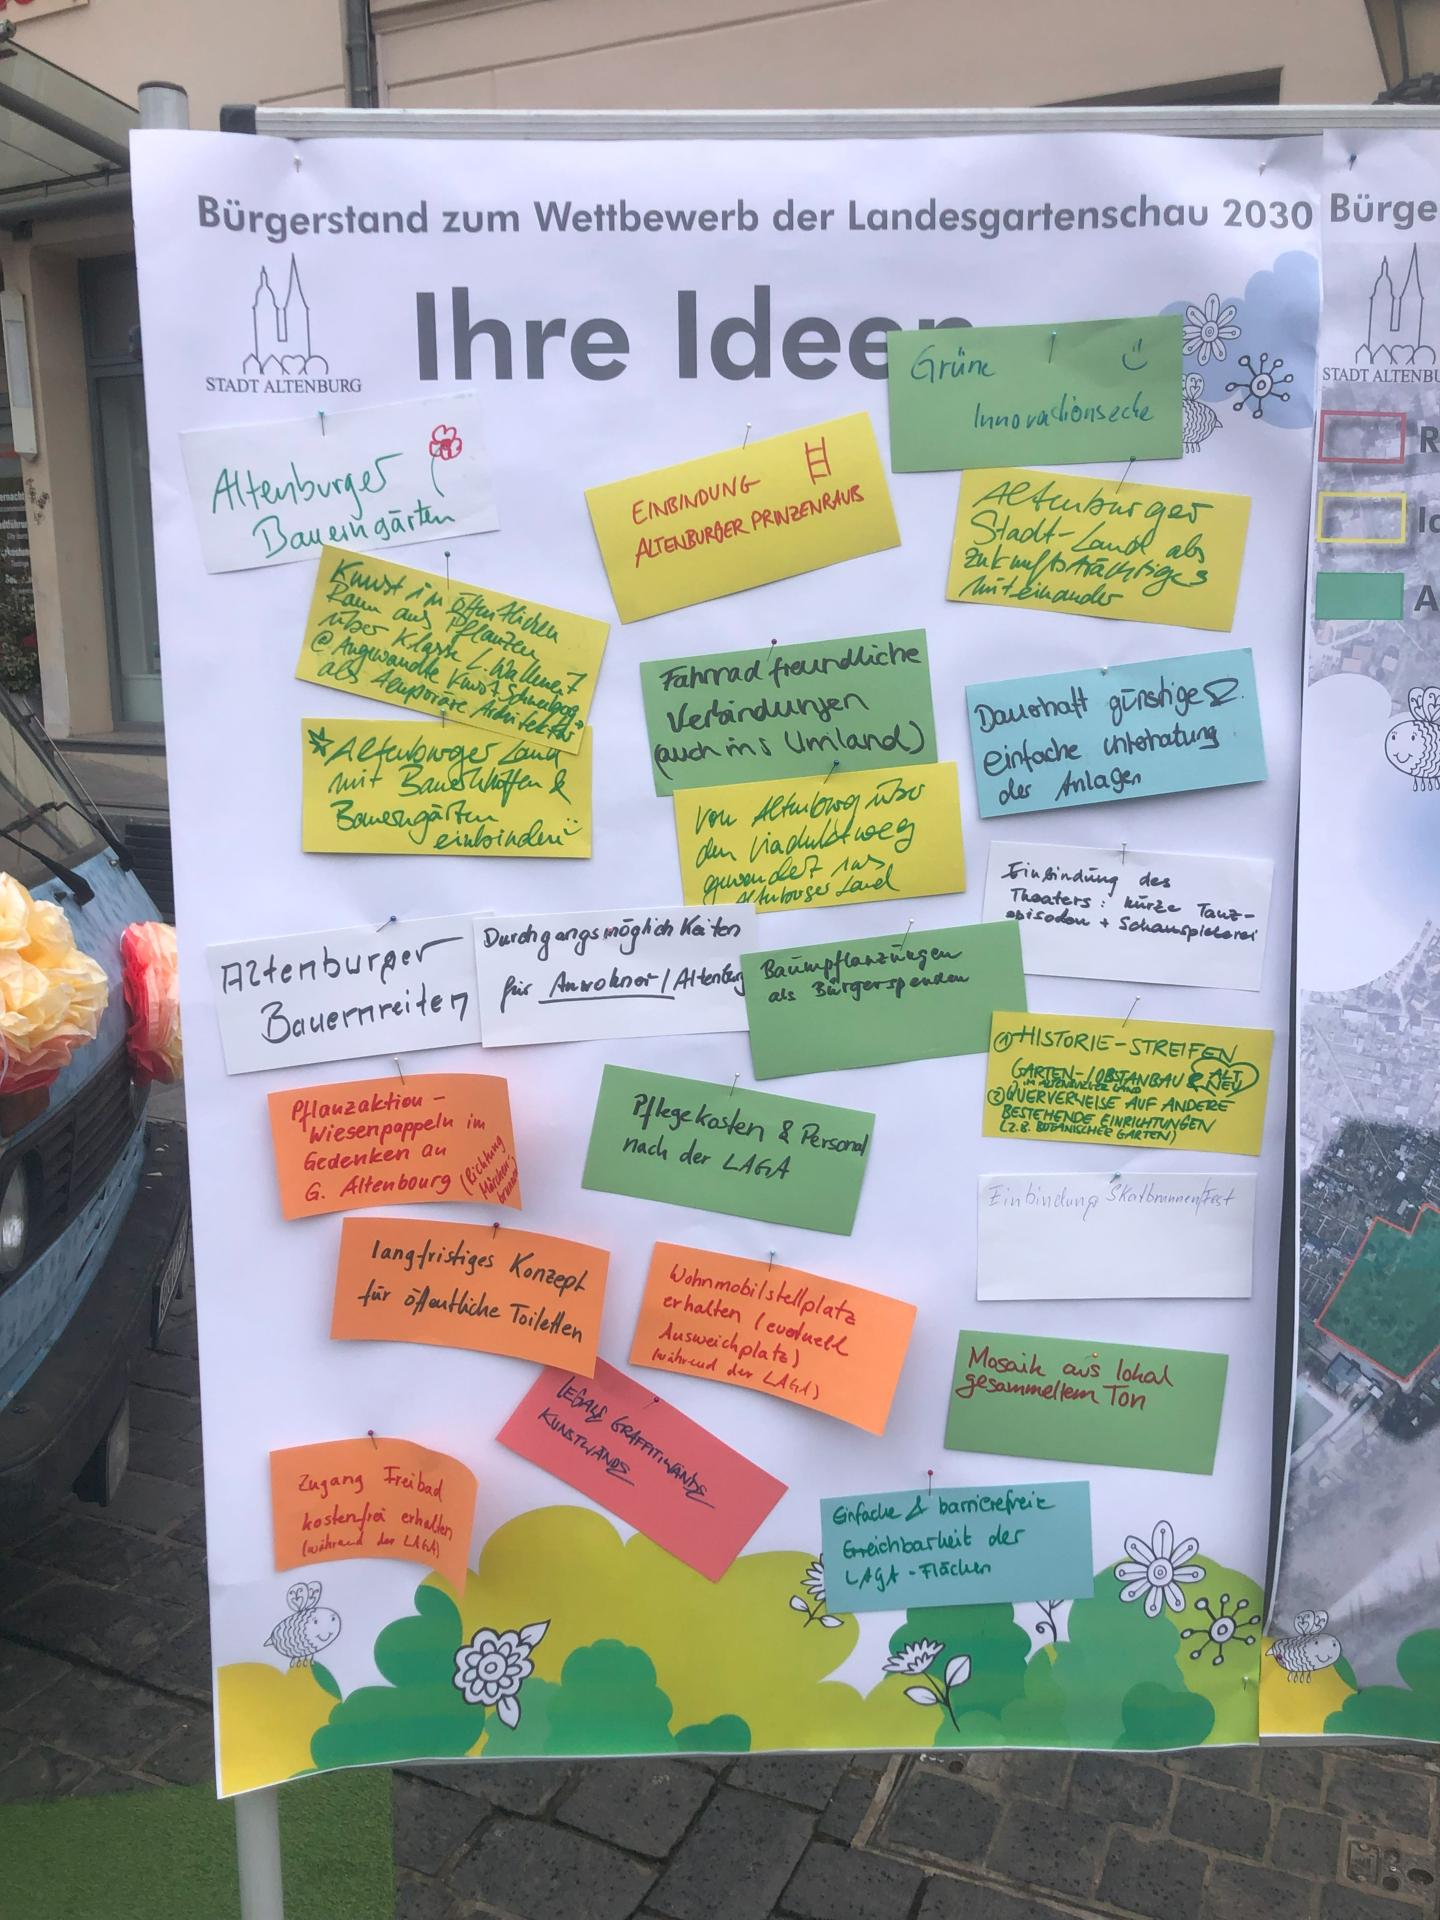 Bürgerstand zum Wettbewerb der Landesgartenschau 2030
Ihre Ideen
STADT ALTENBURG
Grüne
Innovationsecke
Altenburger
Bauerngärten
EINBINDUNG
ALTENBURGER PRINZENRAUB
Altenburger
Stadt-Land als
zukunftsträchtiges
miteinander
Kunst im öffentlichen
Raum aus Pflanzen
über Klasse L. Wallmert
@Angewandte Kunst Schneeberg
als temporäre Architektur
Fahrrad freundliche
Verbindungen
(auch ins Umland)
Dauerhaft günstige &
einfache Unterhaltung
der Anlagen
Altenburger Land
mit Bauernhöfen &
Bauerngärten
einbinden
von Altenburg über
den Viaduktweg
gewandert ins
Altenburger Land
Einbindung des
Theaters: kurze Tanz-
episoden + Schauspielerei
Altenburger
Bauernreiten
Durchgangsmöglichkeiten
für Anwohner/Altenburg
Baumpflanzungen
als Bürgerspenden
① HISTORIE-STREIFEN
GARTEN-/OBSTANBAU & ALT
NEU
IM ALTENBURGER LAND
② QUERVERWEISE AUF ANDERE
BESTEHENDE EINRICHTUNGEN
(Z.B. BOTANISCHER GARTEN)
Pflanzaktion -
Wiesenpappeln im
Gedenken an
G. Altenbourg (Richtung
Märchen-
brunnen)
Pflegekosten & Personal
nach der LAGA
Einbindung Skatbrunnenfest
langfristiges Konzept
für öffentliche Toiletten
Wohnmobilstellplatz
erhalten (eventuell
Ausweichplatz)
(während der LAGA)
Mosaik aus lokal
gesammeltem Ton
LEGALE GRAFFITIWÄNDE
KUNSTWÄNDE
Zugang Freibad
kostenfrei erhalten
(während der LAGA)
Einfache & barrierefreie
Erreichbarkeit der
LAGA-Flächen
Bürge
STADT ALTENBU
R
A